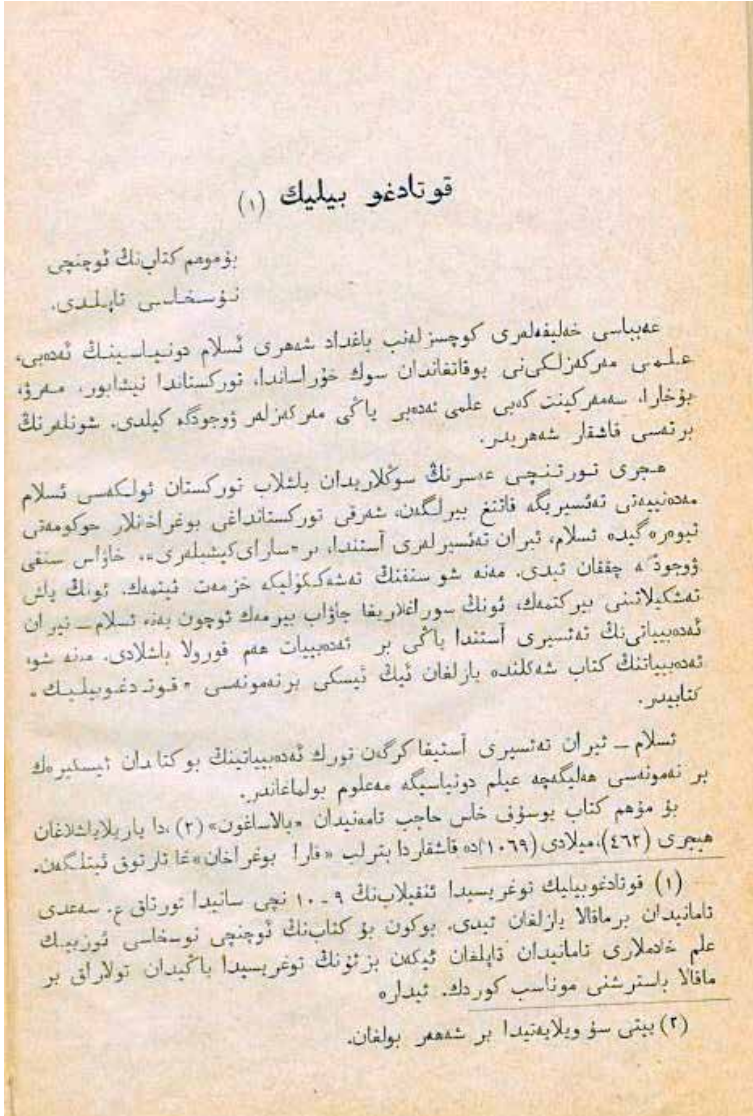 قوتادغو بیلیك (١)
بۇ موهم كتابنڭ ئوچنچی
نۇسخاسی تاپـلـدی.
عەبباسی خەلیفەلەری كوچسزلەنب باغداد شەهری ئسلام دونیـاسـینـڭ ئەدەبی،
عـلـمی مەركەزلـكی‌نی یوقاتقاندان سوك خۇراساندا، توركستاندا نیشابور، مـەرۋ،
بۇخارا، سەمەركینت كەبی علمی ئەدەبی یاڭی مەركەزلەر ۋوجودگە كیلدی. شونلەرنڭ
برتەسی قاشقار شەهریدر.
هـجری تـورتـنـچی عەسرنڭ سوڭلاریدان باشلاب توركستان ئولـكەسی ئسلام
مەدەنییەتی تەئسیریگە قاتتغ بیرلـگەن، شەرقی توركستانداغی بوغراخانلار حوكومەتی
تیوەرەگیدە ئسلام، ئیران تەئسیرلەری آستندا، بر «سارای كیشیلەری»، خاۋاس سنفی
ۋوجودگە چققان ئیدی. مەنە شو سنفنڭ تەشەككۇلیكە خزمەت ئیتمەك، ئونڭ باش
تەشكیلاتنی بیركتمەك، ئونڭ سوراغلاریغا جاۋاب بیرمەك ئوچون یەنە ئسلام ــ ئیران
ئەدەبییاتی‌نڭ تەئسیری آستندا یاڭی بر ئەدەبییات هەم قورولا باشلادی. مەنە شو
ئەدەبییاتنڭ كتاب شەكلندە یازلغان ئیڭ ئیسكی برنەمونەسی «قـوتـادغـوبیلـیـك»
كتابیدر.
ئسلام ــ ئیران تەئسیری آستیغا كرگەن تورك ئەدەبییاتینڭ بو كتابدان ئیسكیرەك
بر نەمونەسی هەلیگەچە عیلم دونیاسیگە مەعلوم بولماغاندر.
بۇ مۇهم كتاب یوسۇف خاس حاجب تامەنیدان «بالاساغون» (٢)،دا یازیلاباشلاغان
هیجری (٤٦٢)، میلادی (١٠٦٩)دە قاشقاردا بترلب «قارا بوغراخان»غا تارتوق ئیتلـگەن.
(١) قوتادغوبیلیك توغریسیدا ئنقیلاب‌نڭ ٩ ـ ١٠ نچی سانیدا تورتاق ع. سەعدی
تامانیدان برماقالا یازلغان ئیدی. بوكون بۇ كتاب‌نڭ ئوچنچی نوسخاسی ئوزبیـك
علم خادملاری تامانیدان تاپلغان ئیكەن بز ئۇنڭ توغریسیدا یاڭیدان تولاراق بر
ماقالا باسترشنی موناسب كوردك. ئیدارە
(٢) ییتی سۇ ویلایەتیدا بر شەهەر بولغان.